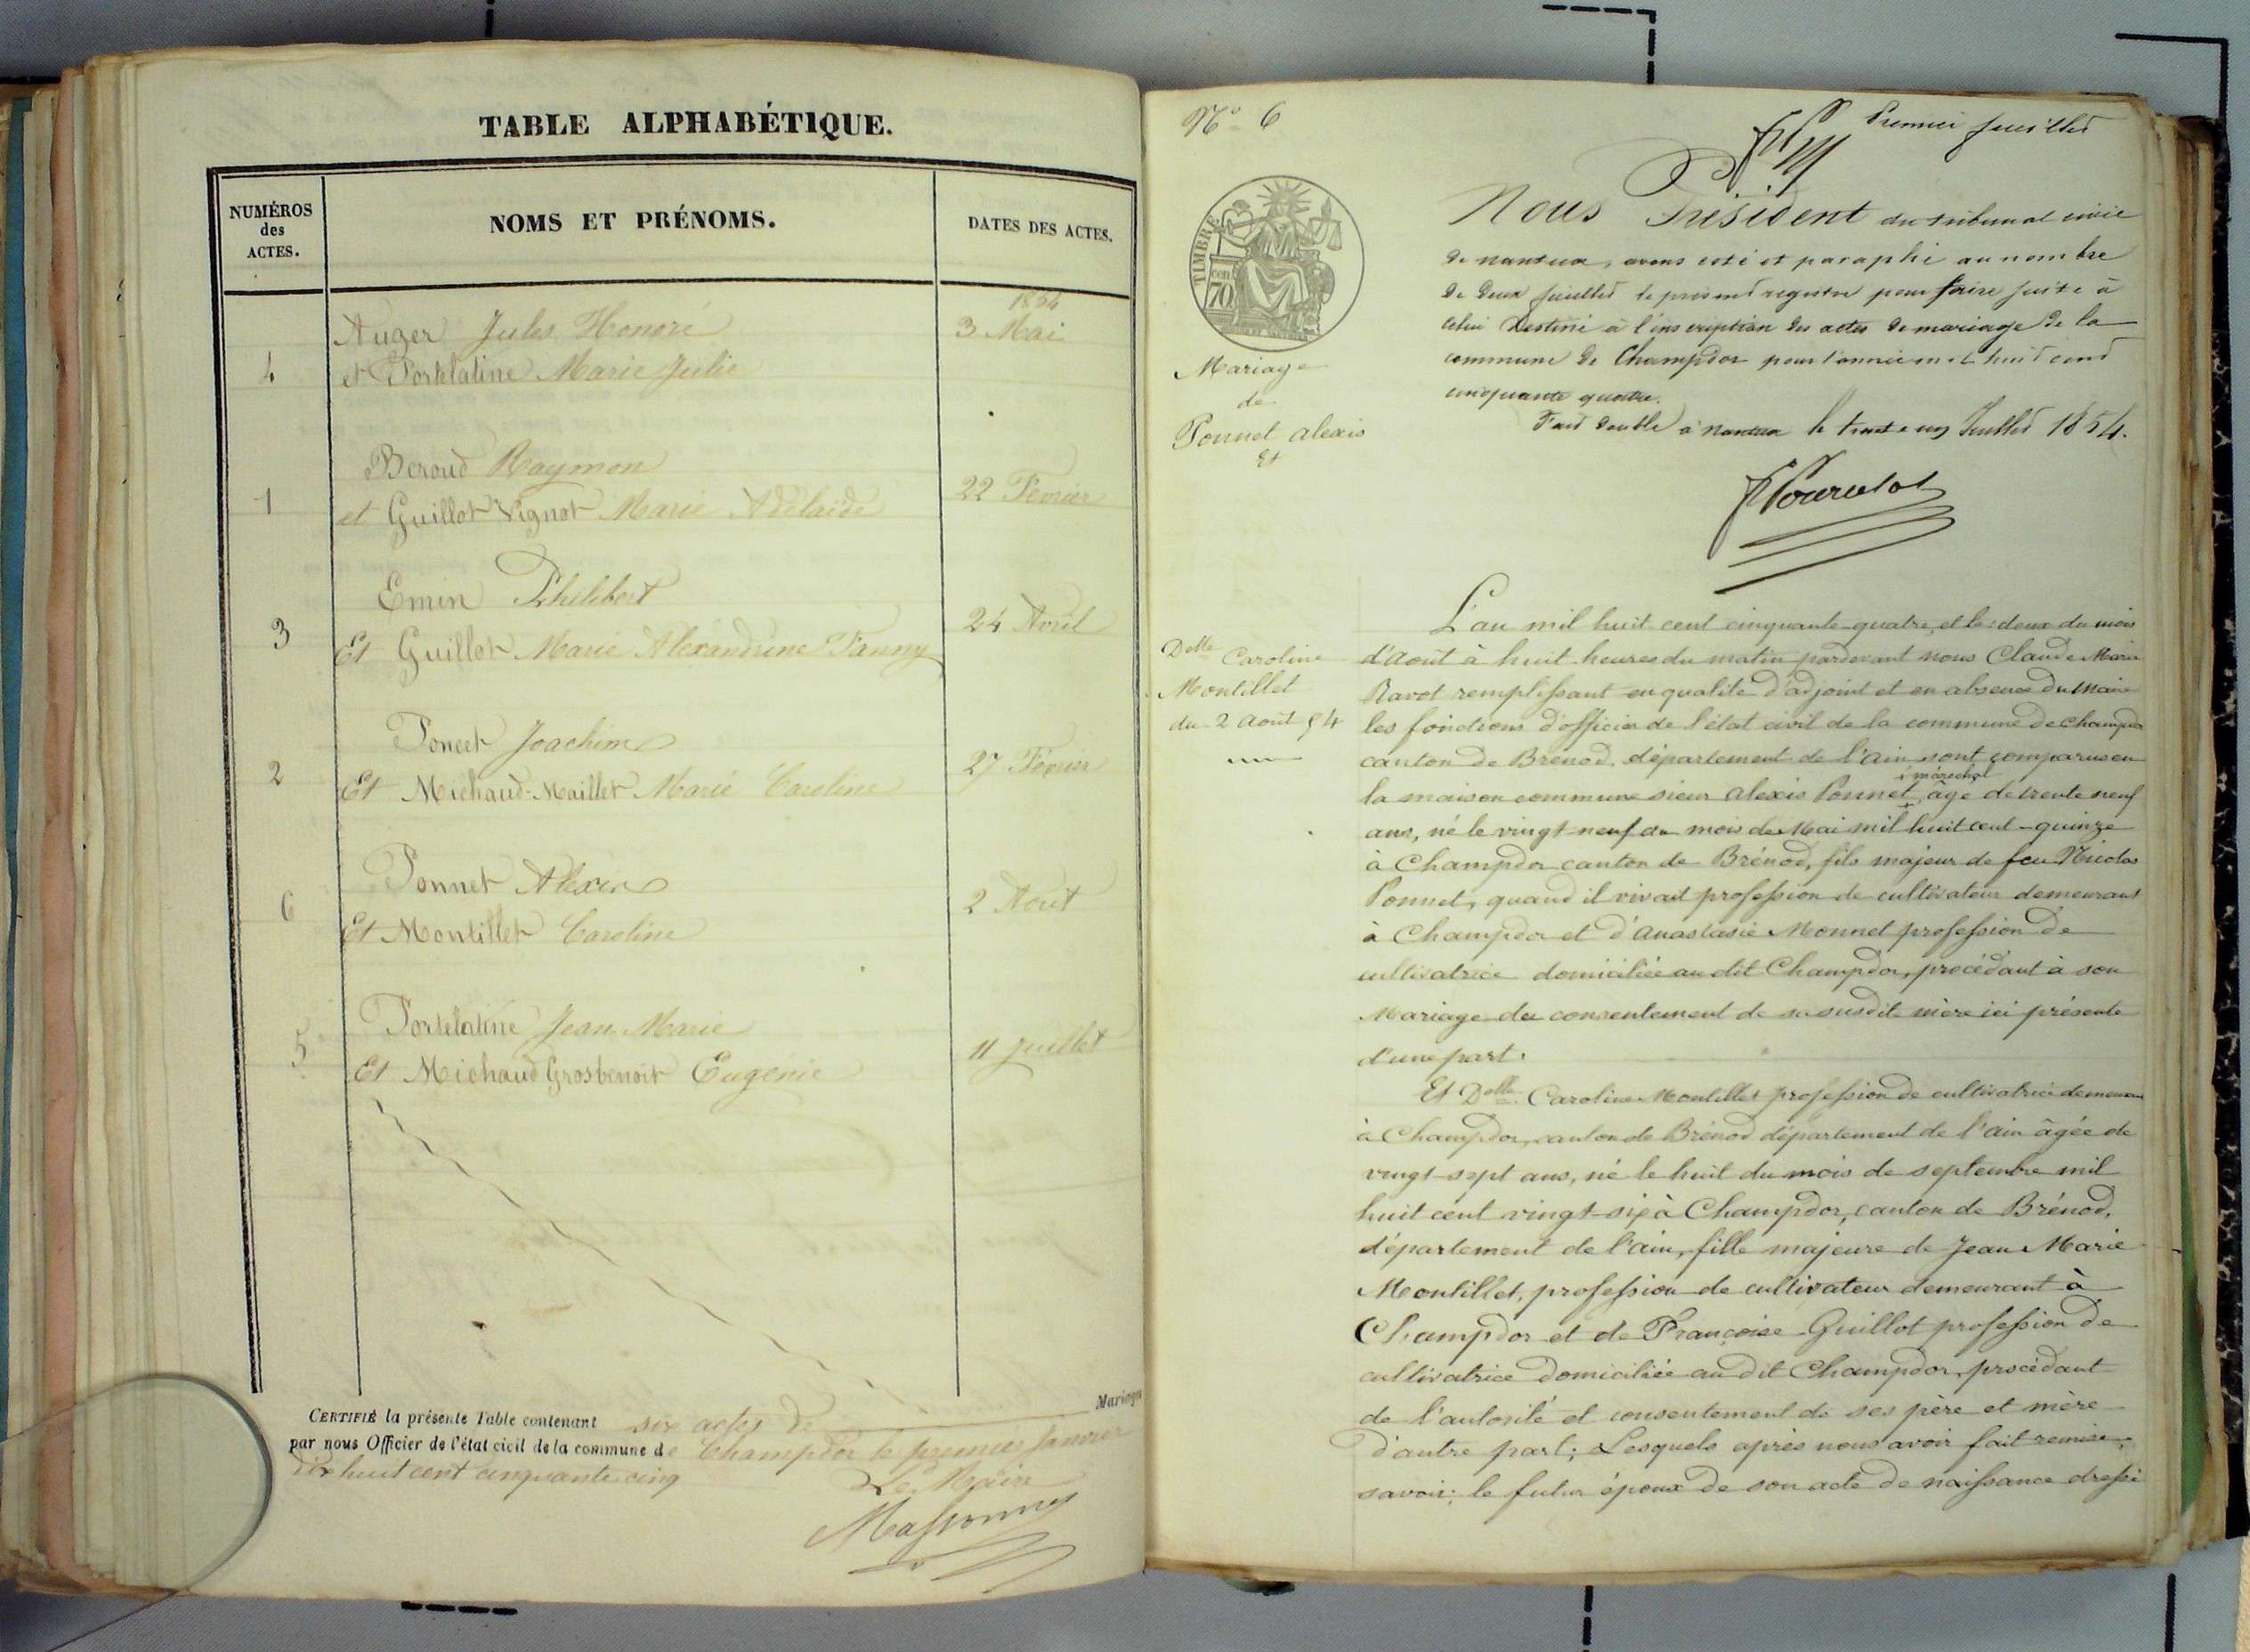 TABLE ALPHABÉTIQUE.
NUMÉROS
des
ACTES.
NOMS ET PRÉNOMS.
DATES DES ACTES.
1854
Auger Jules Honoré
3 Mai
4
et Portelatine Marie Julie
Beroud Raymon
1
et Guillot Vignot Marie Adélaïde
22 Fevrier
Emin Philibert
3
Et Guillot Marie Alexandrine Fanny
24 Avril
Poncet Joachim
2
Et Michaud-Maillet Marie Caroline
27 Février
Ponnet Alexis
6
Et Montillet Caroline
2 Août
Portelatine Jean Marie
5
Et Michaud Grosbenoit Eugénie
11 Juillet
CERTIFIÉ la présente Table contenant six actes de
Mariages
par nous Officier de l'état civil de la commune de Champdor le premier Janvier
dix huit cent cinquante cinq
Le Maire
Massonny
N° 6
Premier feuillet
TIMBRE
70
Nous Président du tribunal civil
de nantua, avons coté et paraphé au nombre
de deux feuillets le présent registre pour faire suite à
celui destiné à l'inscription des actes de mariage de la
commune de Champdor pour l'année mil huit cent
cinquante quatre.
Fait double à nantua le trente un Juillet 1854.
Mariage
de
Ponnet alexis
Et
Delle Caroline
Montillet
du 2 août 54
L'an mil huit cent cinquante-quatre, et le deux du mois
d'août à huit heures du matin pardevant nous Claude Marie
Ravot remplissant en qualité d'adjoint et en absence du Maire
les fonctions d'officier de l'état civil de la commune de champdor
canton de Brénod, département de l'ain sont comparus en
la maison commune sieur alexis Ponnet, maréchal âgé de trente neuf
ans, né le vingt-neuf du mois de Mai mil huit cent-quinze
à Champdor canton de Brénod, fils majeur de feu Nicolas
Ponnet, quand il vivait profession de cultivateur demeurant
à Champdor et d'anastasie Monnet profession de
cultivatrice domiciliée au dit Champdor, procédant à son
Mariage du consentement de sa susdite mère ici présente
d'une part.
Et Delle Caroline Montillet profession de cultivatrice demeurant
à Champdor, canton de Brénod département de l'ain âgée de
vingt-sept ans, né le huit du mois de septembre mil
huit cent vingt-six à Champdor, canton de Brénod,
département de l'ain, fille majeure de Jean Marie
Montillet, profession de cultivateur demeurant à
Champdor et de Françoise Guillot profession de
cultivatrice domiciliée au dit Champdor, procédant
de l'autorité et consentement de ses père et mère
d'autre part; Lesquels après nous avoir fait remise,
savoir; le futur époux de son acte de naissance dressé